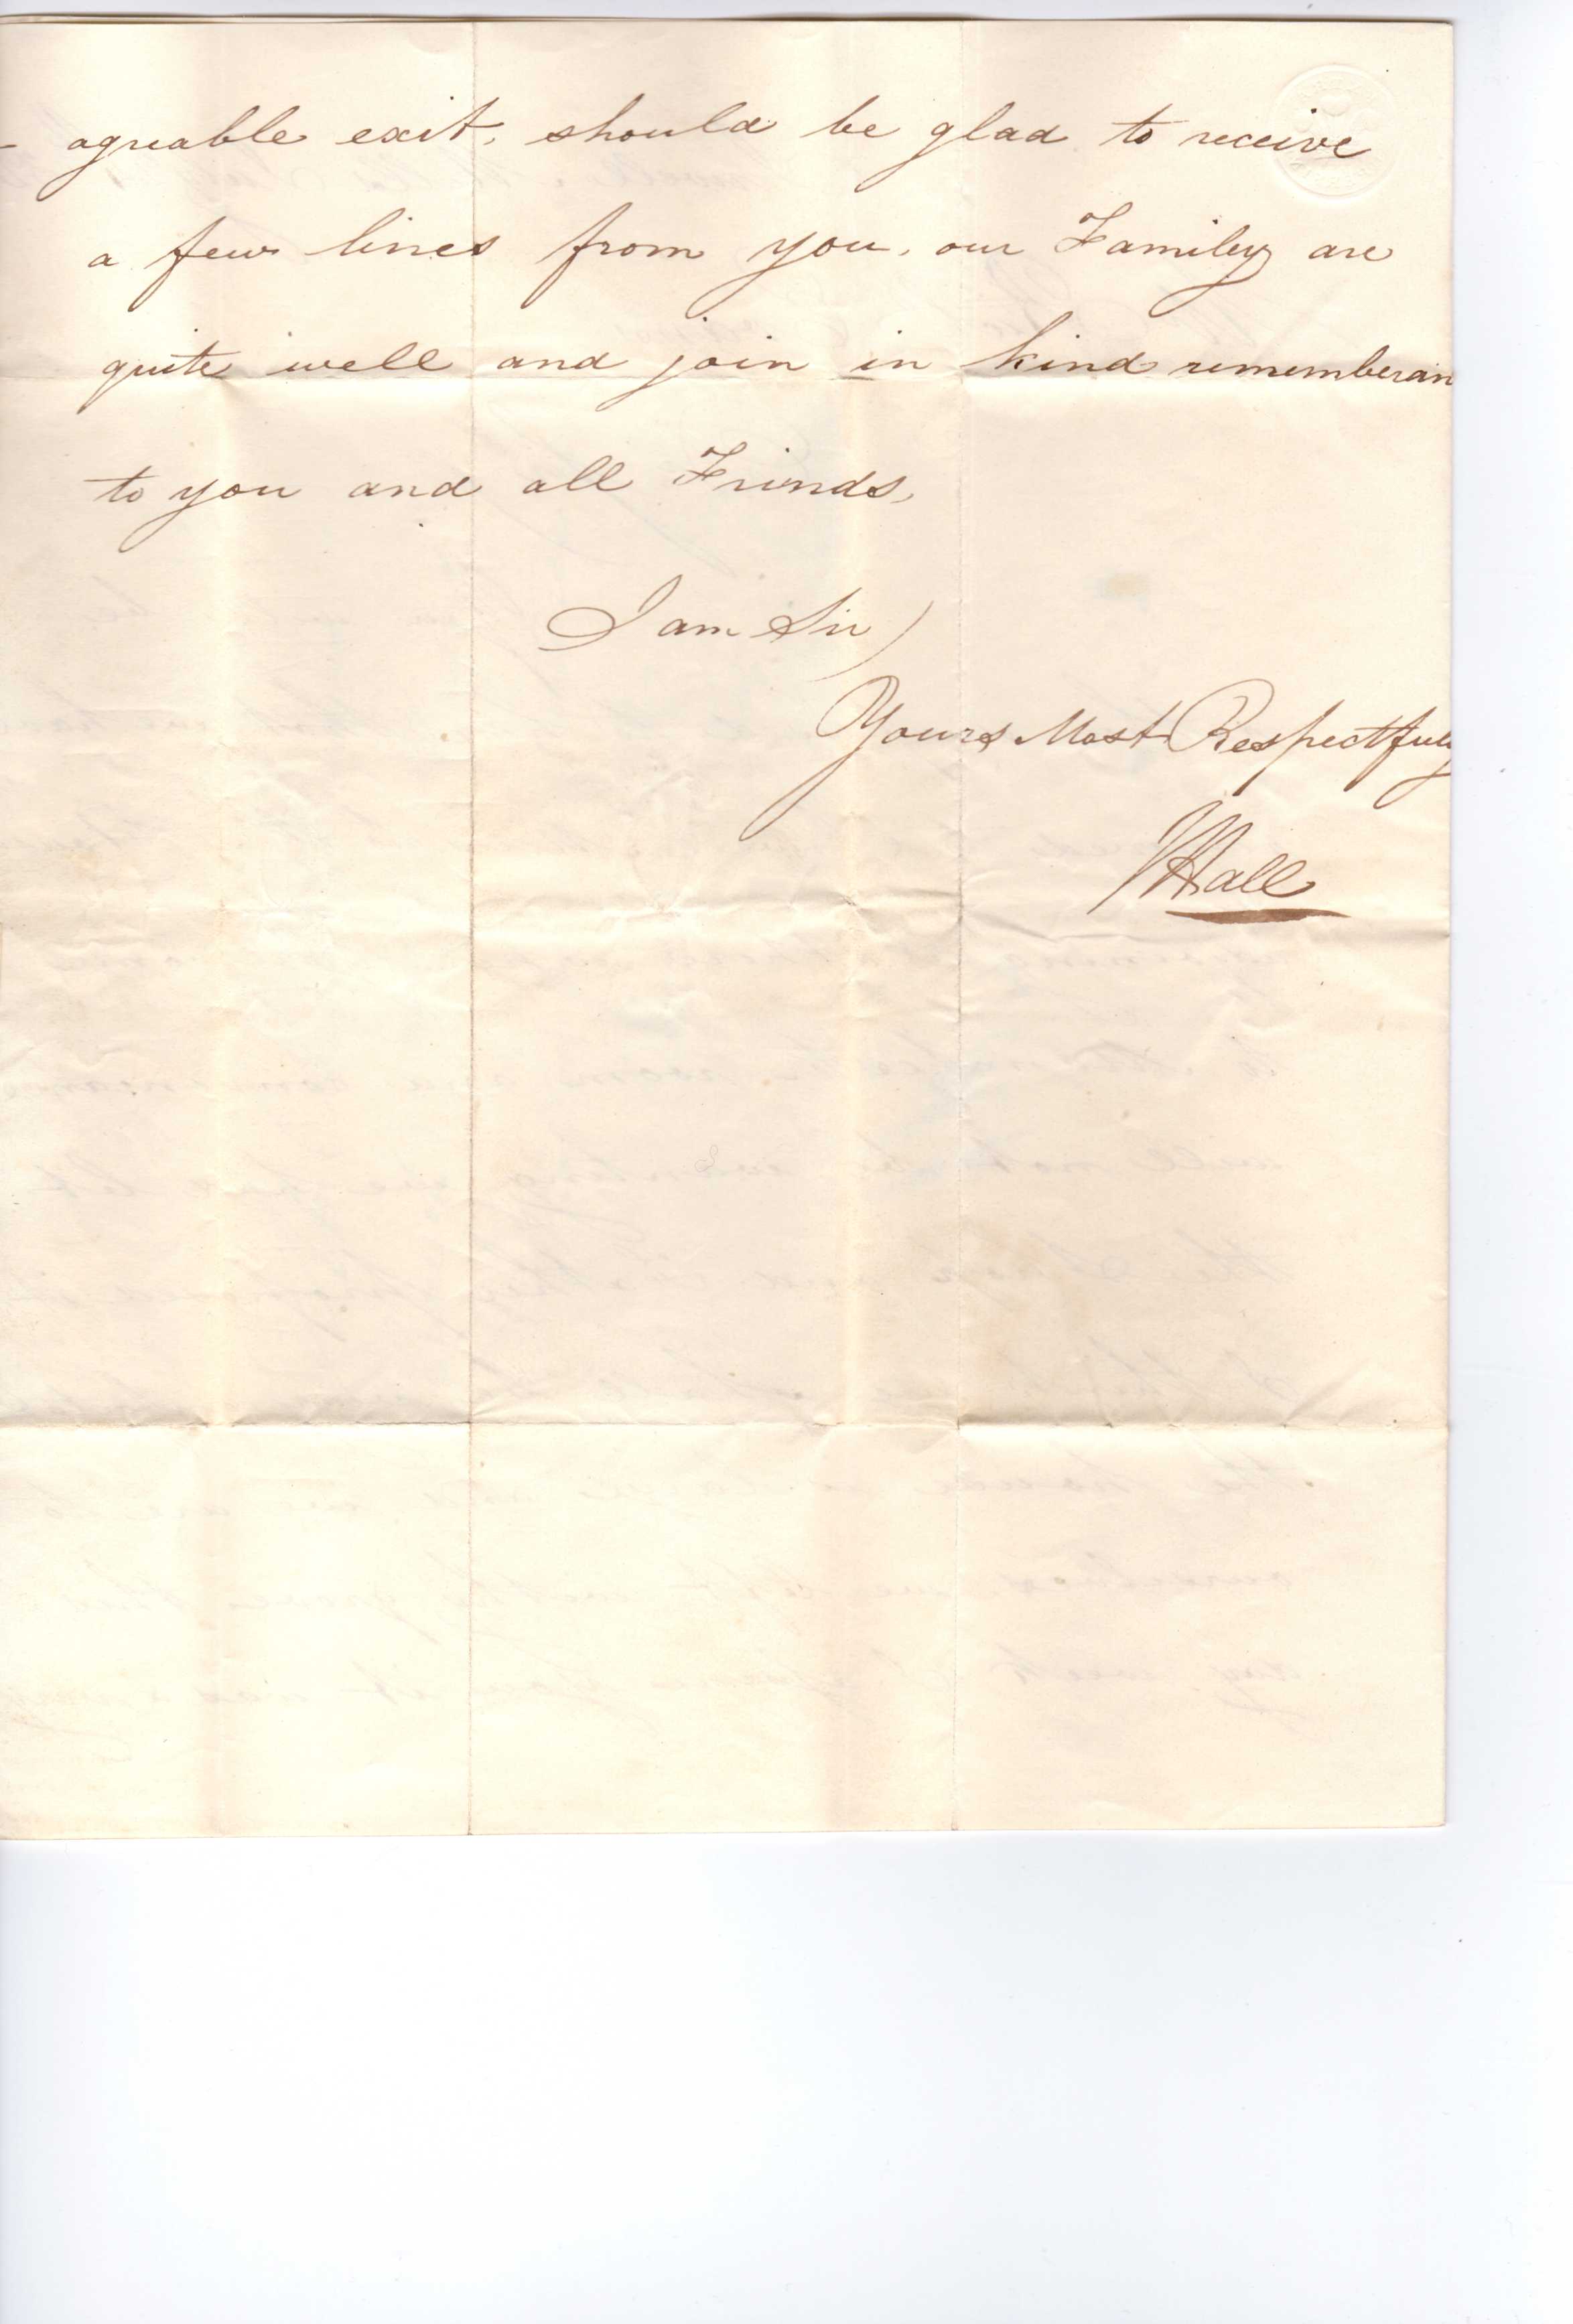 - agreable exit, should be glad to receive
a few lines from you. our Family are
quite well and join in kind rememberan
to you and all Friends,
I am Sir
Yours Most Respectfuly
Hall